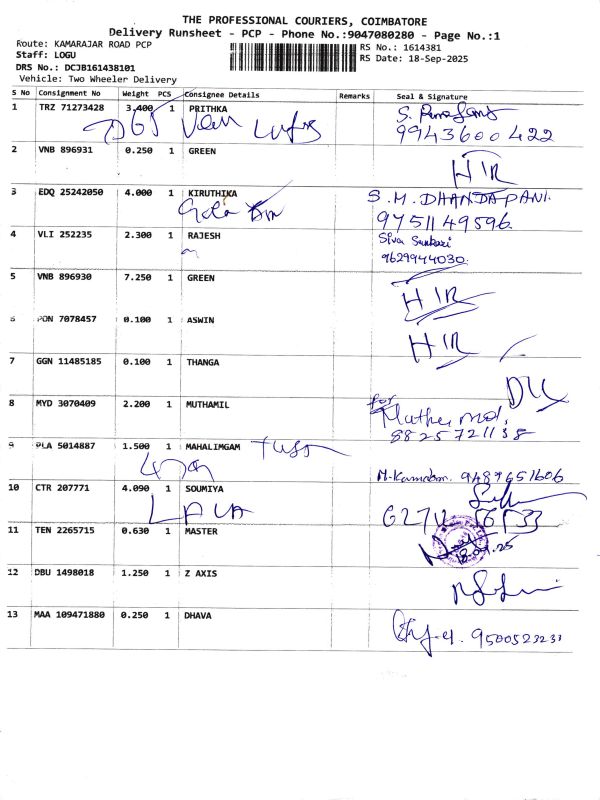 THE PROFESSIONAL COURIERS, COIMBATORE
Delivery Runsheet - PCP - Phone No.:9047080280 - Page No.:1
Route: KAMARAJAR ROAD PCP
RS No.: 1614381
Staff: LOGU
RS Date: 18-Sep-2025
DRS No.: DCJB161438101
Vehicle: Two Wheeler Delivery
S No Consignment No Weight PCS Consignee Details Remarks Seal & Signature
1 TRZ 71273428 3.400 1 PRITHKA
9943600422
2 VNB 896931 0.250 1 GREEN
HIR
3 EDQ 25242050 4.000 1 KIRUTHIKA S.M. DHANDAPANI.
9751149596.
4 VLI 252235 2.300 1 RAJESH Siva Sankari
9629944030.
5 VNB 896930 7.250 1 GREEN
HIR
6 PON 7078457 0.100 1 ASWIN
HIR
7 GGN 11485185 0.100 1 THANGA
8 MYD 3070409 2.200 1 MUTHAMIL for
8825721138
9 PLA 5014887 1.500 1 MAHALIMGAM
9487651606
10 CTR 207771 4.090 1 SOUMIYA
LAVA
11 TEN 2265715 0.630 1 MASTER
18.09.25
12 DBU 1498018 1.250 1 Z AXIS
13 MAA 109471880 0.250 1 DHAVA
9500523233